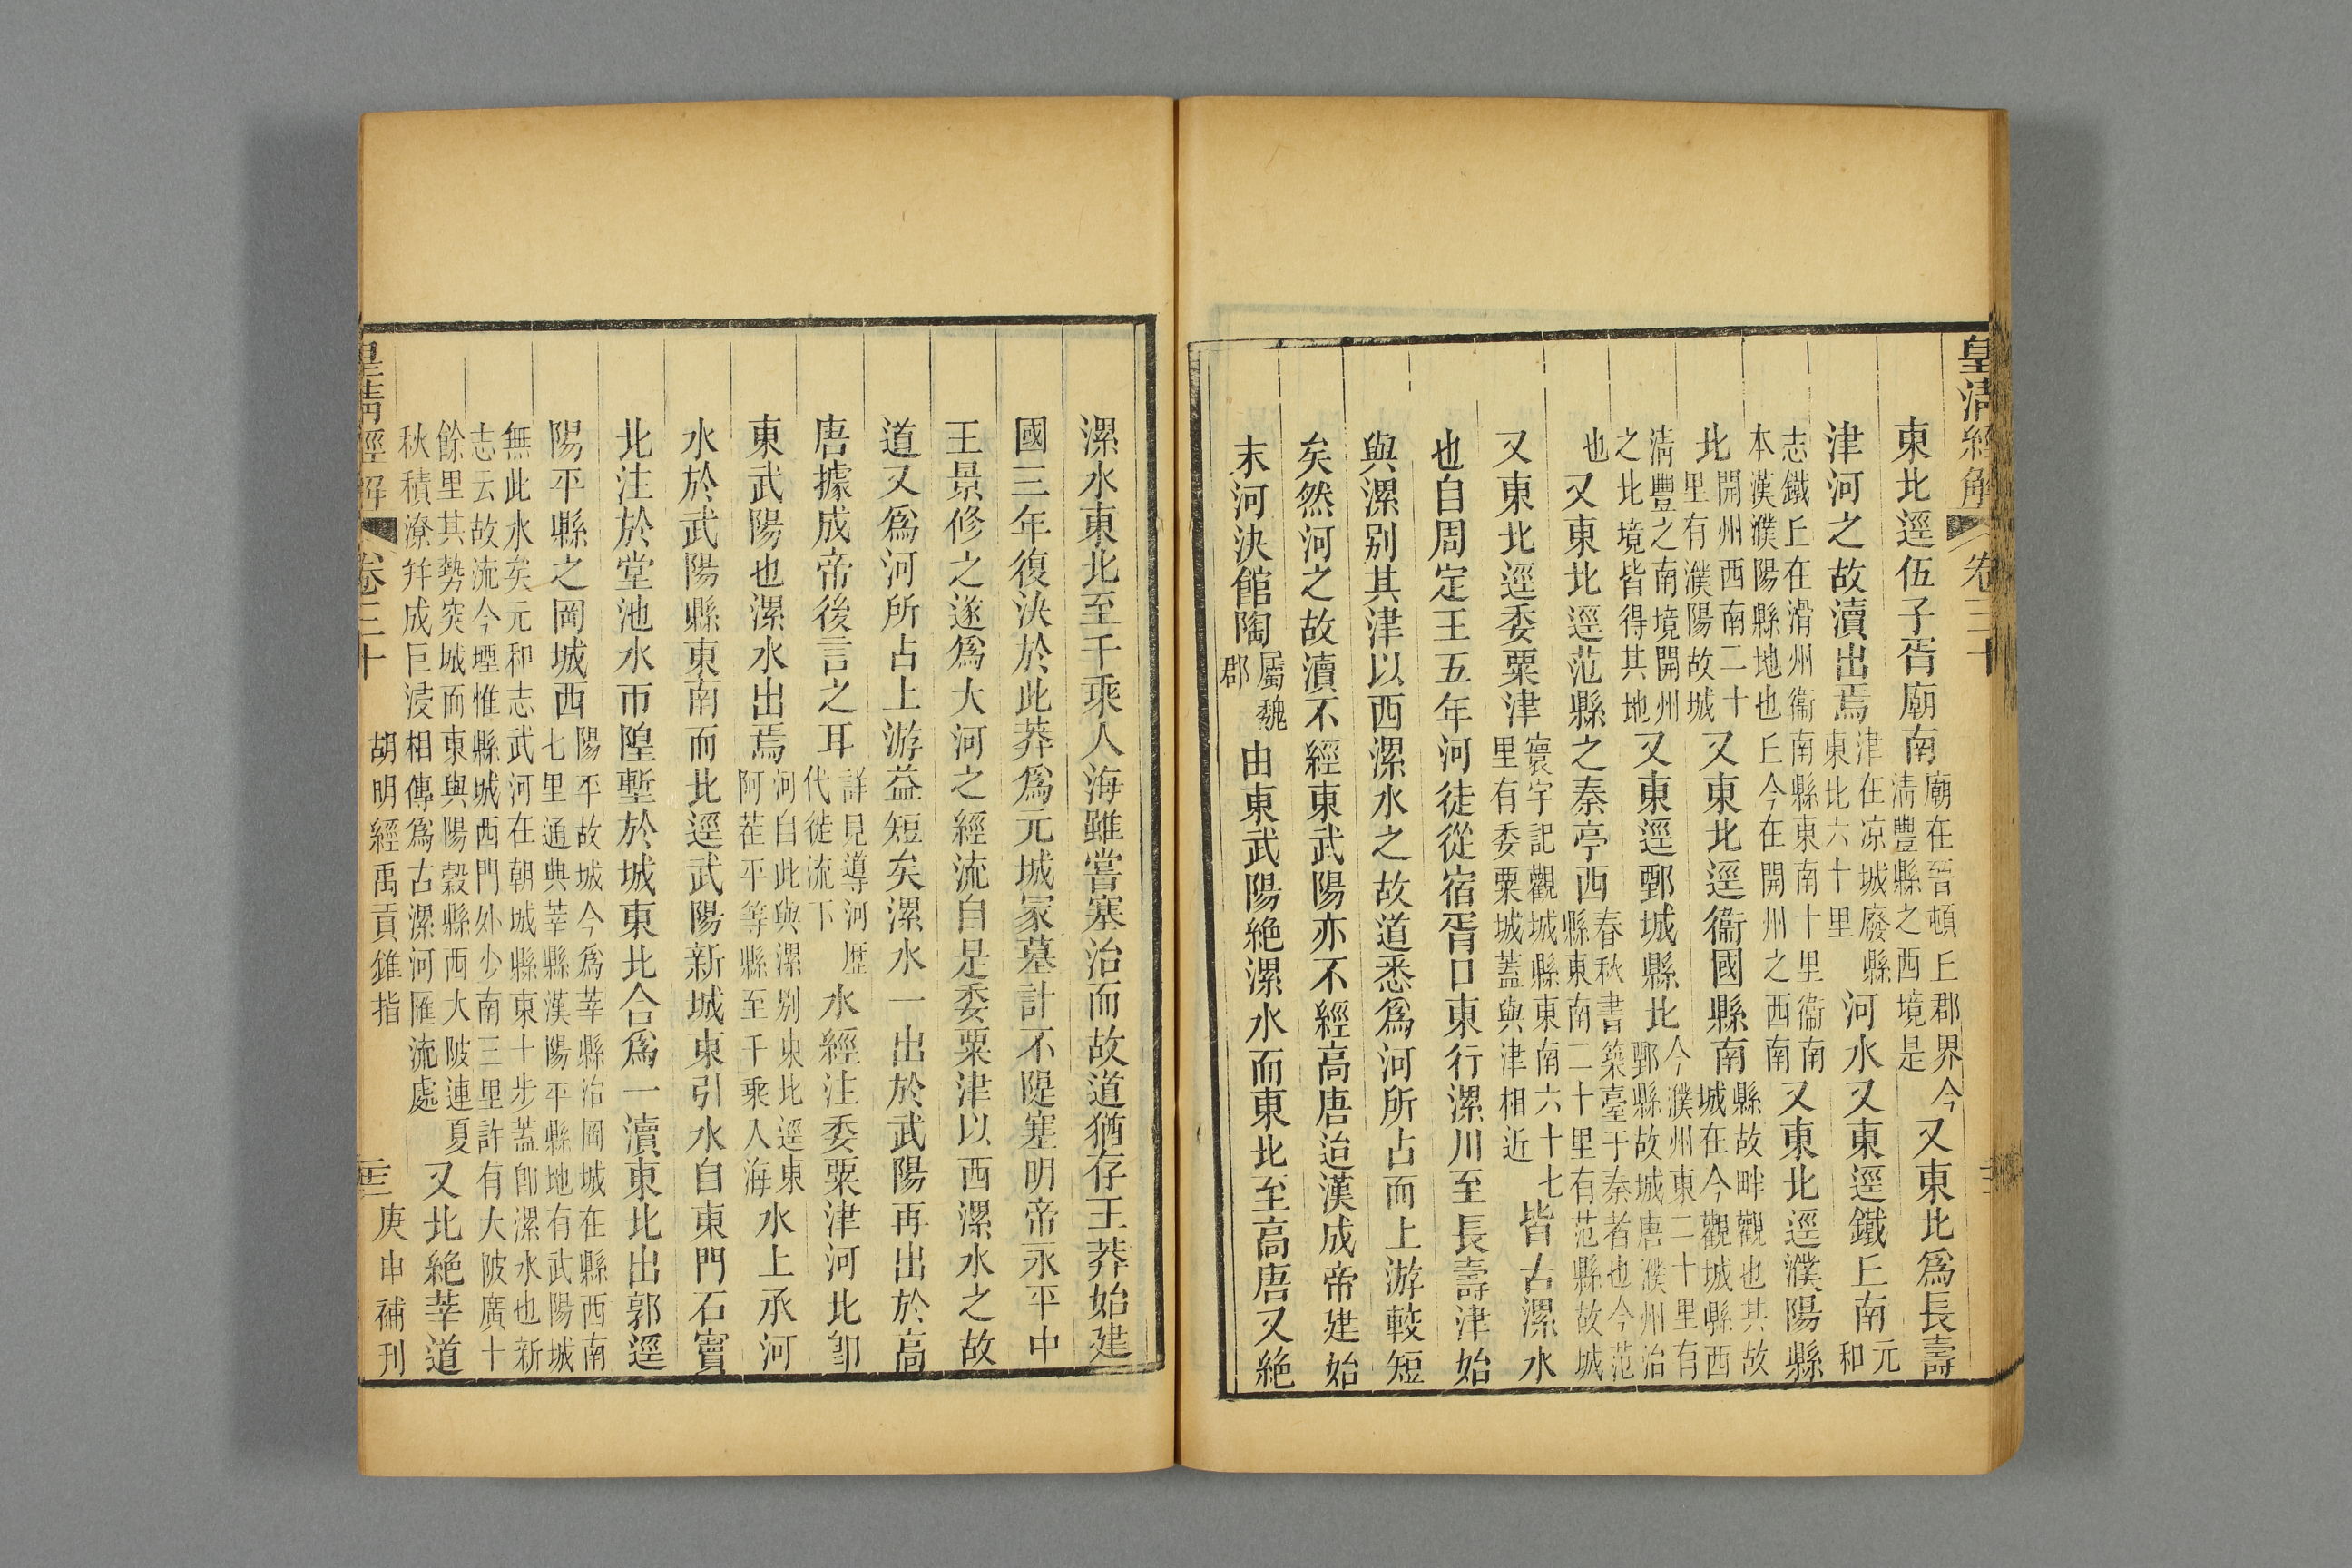 皇清經解 卷三十
東北逕伍子胥廟南廟在晉頓丘郡界今清豐縣之西境是又東北爲長壽
津河之故瀆出焉津在凉城廢縣東北六十里河水又東逕鐵丘南元和
志鐵丘在滑州衞南縣東南十里衞南本漢濮陽縣地也丘今在開州之西南又東北逕濮陽縣
北開州西南二十里有濮陽故城又東北逕衞國縣南縣故畔觀也其故城在今觀城縣西
清豐之南境開州之北境皆得其地又東逕鄄城縣北今濮州東二十里有鄄縣故城唐濮州治
也又東北逕范縣之秦亭西春秋書築臺于秦者也今范縣東南二十里有范縣故城
又東北逕委粟津寰宇記觀城縣東南六十七里有委粟城蓋與津相近皆古漯水
也自周定王五年河徒從宿胥口東行漯川至長壽津始
與漯别其津以西漯水之故道悉爲河所占而上游較短
矣然河之故瀆不經東武陽亦不經高唐迨漢成帝建始
末河決館陶屬魏郡由東武陽絶漯水而東北至高唐又絶
漯水東北至千乘入海雖嘗塞治而故道猶存王莽始建
國三年復決於此莽爲元城冢墓計不隄塞明帝永平中
王景修之遂爲大河之經流自是委粟津以西漯水之故
道又爲河所占上游益短矣漯水一出於武陽再出於高
唐據成帝後言之耳詳見導河歷代徙流下水經注委粟津河北卽
東武陽也漯水出焉河自此與漯别東北逕東阿茌平等縣至千乘入海水上承河
水於武陽縣東南而北逕武陽新城東引水自東門石竇
北注於堂池水帀隍塹於城東北合爲一瀆東北出郭逕
陽平縣之岡城西陽平故城今爲莘縣治岡城在縣西南七里通典莘縣漢陽平縣地有武陽城
無此水矣元和志武河在朝城縣東十步蓋卽漯水也新志云故流今堙惟縣城西門外少南三里許有大陂廣十
餘里其勢突城而東與陽穀縣西大陂連夏秋積潦幷成巨浸相傳爲古漯河匯流處又北絶莘道
皇清經解 卷三十 胡明經禹貢錐指 庚申補刊